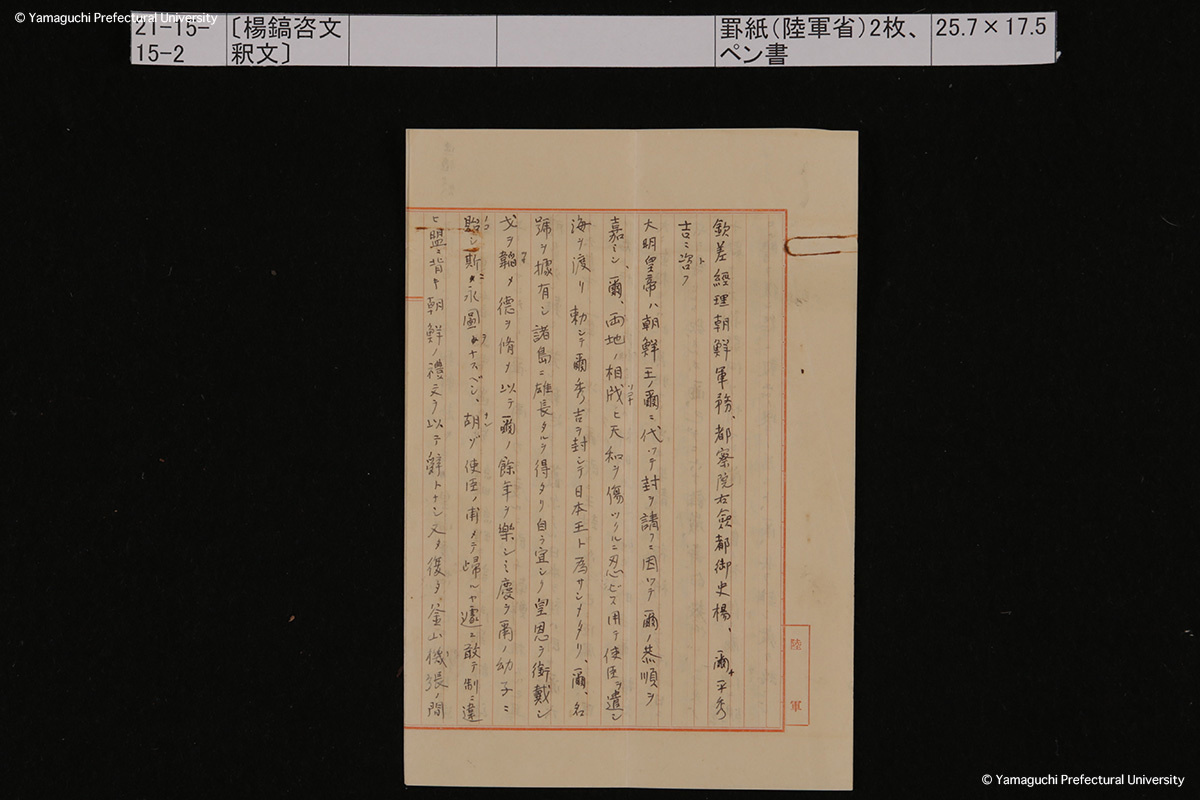 © Yamaguchi Prefectural University
21-15-
15-2
〔楊鎬咨文
釈文〕
罫紙(陸軍省)2枚、
ペン書
25.7×17.5
欽差經理朝鮮軍務、都察院右僉都御史楊、爾平秀
吉ニ咨ス
大明皇帝ハ朝鮮王ノ爾ニ代ツテ封ヲ請フニ因ツテ爾ノ恭順ヲ
嘉ミシ爾、両地ノ相戕ヒ天和ヲ傷ツクルニ忍ビス用テ使臣ヲ遣シ
海ヲ渡リ勅シテ爾秀吉ヲ封シテ日本王ト為サシメタリ、爾、名
號ヲ據有シ諸島ニ雄長タルヲ得タリ自ラ宜シク皇恩ヲ銜戴シ
戈ヲ韜メ德ヲ脩メ以テ爾ノ餘年ヲ樂シミ慶ヲ爾ノ幼子ニ
貽シ斯ニ永圖ヲナスベシ、胡ゾ使臣ノ甫メテ帰ルヤ遽ニ敢テ制ニ違
ヒ盟ニ背キ朝鮮ノ禮文ヲ以テ辭トナシ又タ復タ釜山機張ノ間
陸軍
© Yamaguchi Prefectural University